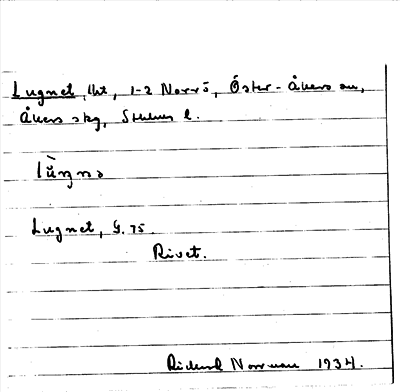 Lugnet, lht, 1-2 Norrö, Öster-Åkers sn,
Åkers skg, Sthlms l.
lùŋnə
Lugnet, G. 75.
Rivet.
Rickard Norrman 1934.